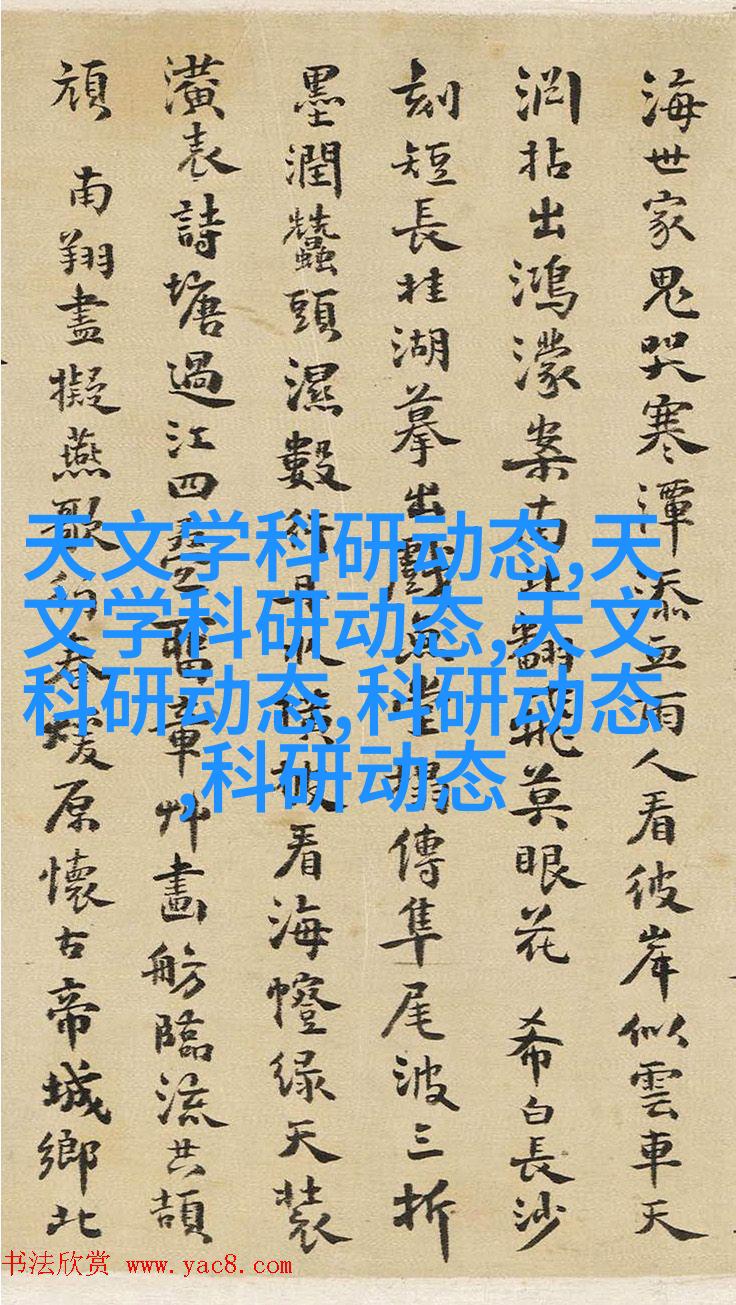 海世家鬼哭寒潭添血雨人看彼岸似雲車天
拈出鴻濛案南北翻飛莫眼花 希白長沙
刻短長桂湖摹出戲魚堂搨傳隼尾波三折
墨潤蠶頭濕數行看海幢绿天裝
潢表詩塘過江四舊章艸畫舫臨流共頡
頏 南翔盡擬燕歌春暖原懷古帝城鄉北
天文学科研动态,天
文学科研动态,天文
科研动态,科研动态
,科研动态
书法欣赏 www.yac8.com